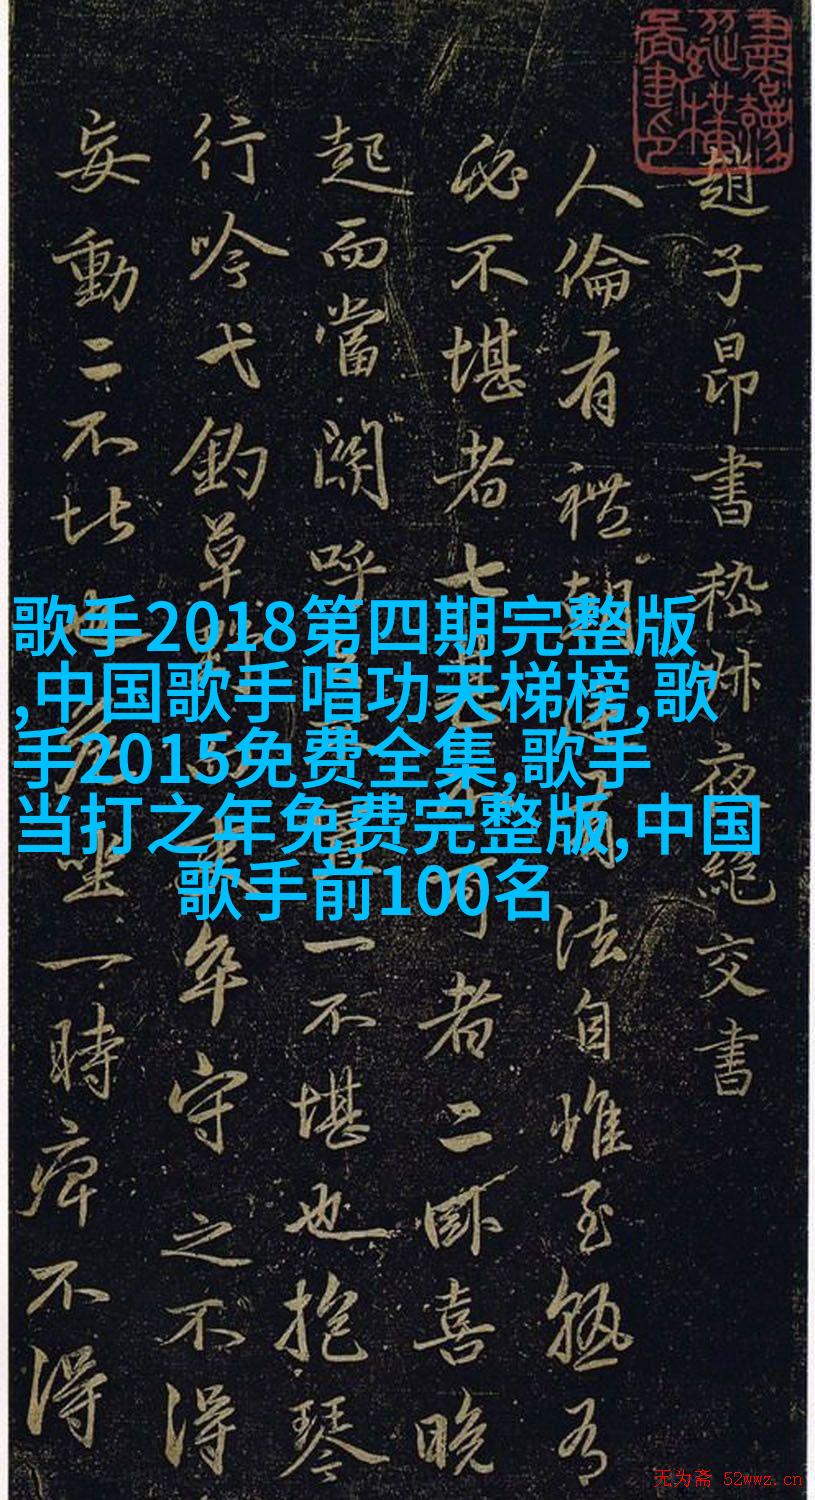 趙子昂書嵇叔夜絕交書
人倫有禮朝廷有法自惟至熟有
必不堪者七甚不可者二卧喜晚
起而當關呼之不置一不堪也抱琴
行吟弋釣草野而吏卒守之不得
妄動二不堪也危坐一時痺不得
歌手2018第四期完整版
,中国歌手唱功天梯榜,歌
手2015免费全集,歌手
当打之年免费完整版,中国
歌手前100名
无为斋 52wwz.cn